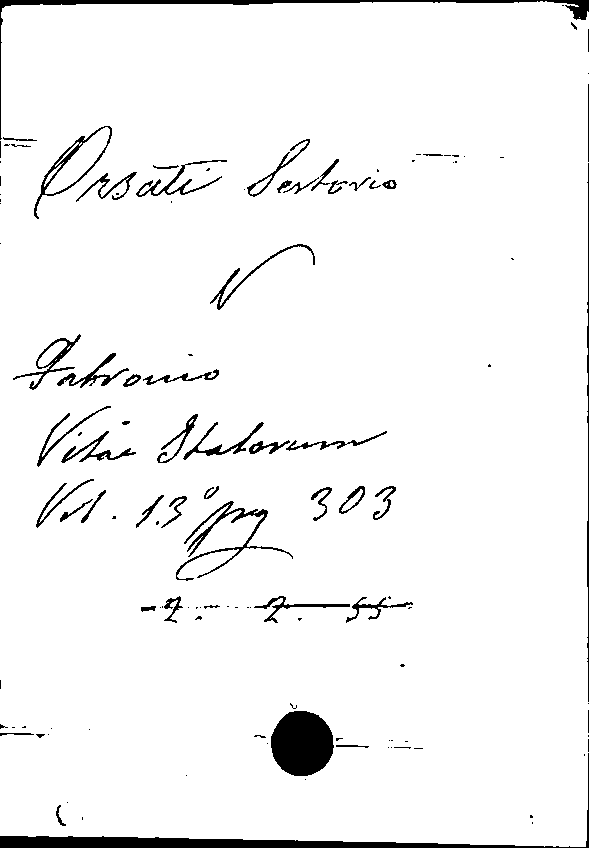 Orsati Sertorio
V
Fabronio
Vitae Italorum
Vol. 13° pag 303
2. 2. 55